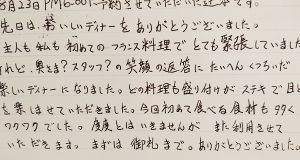 8月23日PM6:00に予約させていただいた辻本です。
先日は、おいしいディナーをありがとうございました。
主人も私も初めてのフランス料理でとても緊張していました
けれど、奥さま?スタッフ?の笑顔の返答にたいへんくつろいだ
楽しいディナーになりました。どの料理も盛り付けがステキで目と
を楽しませていただきました。今回初めて食べる食材も多く
ワクワクでした。度々とはいきませんがまた利用させて
いただきます。まずは御礼まで。ありがとうございました。